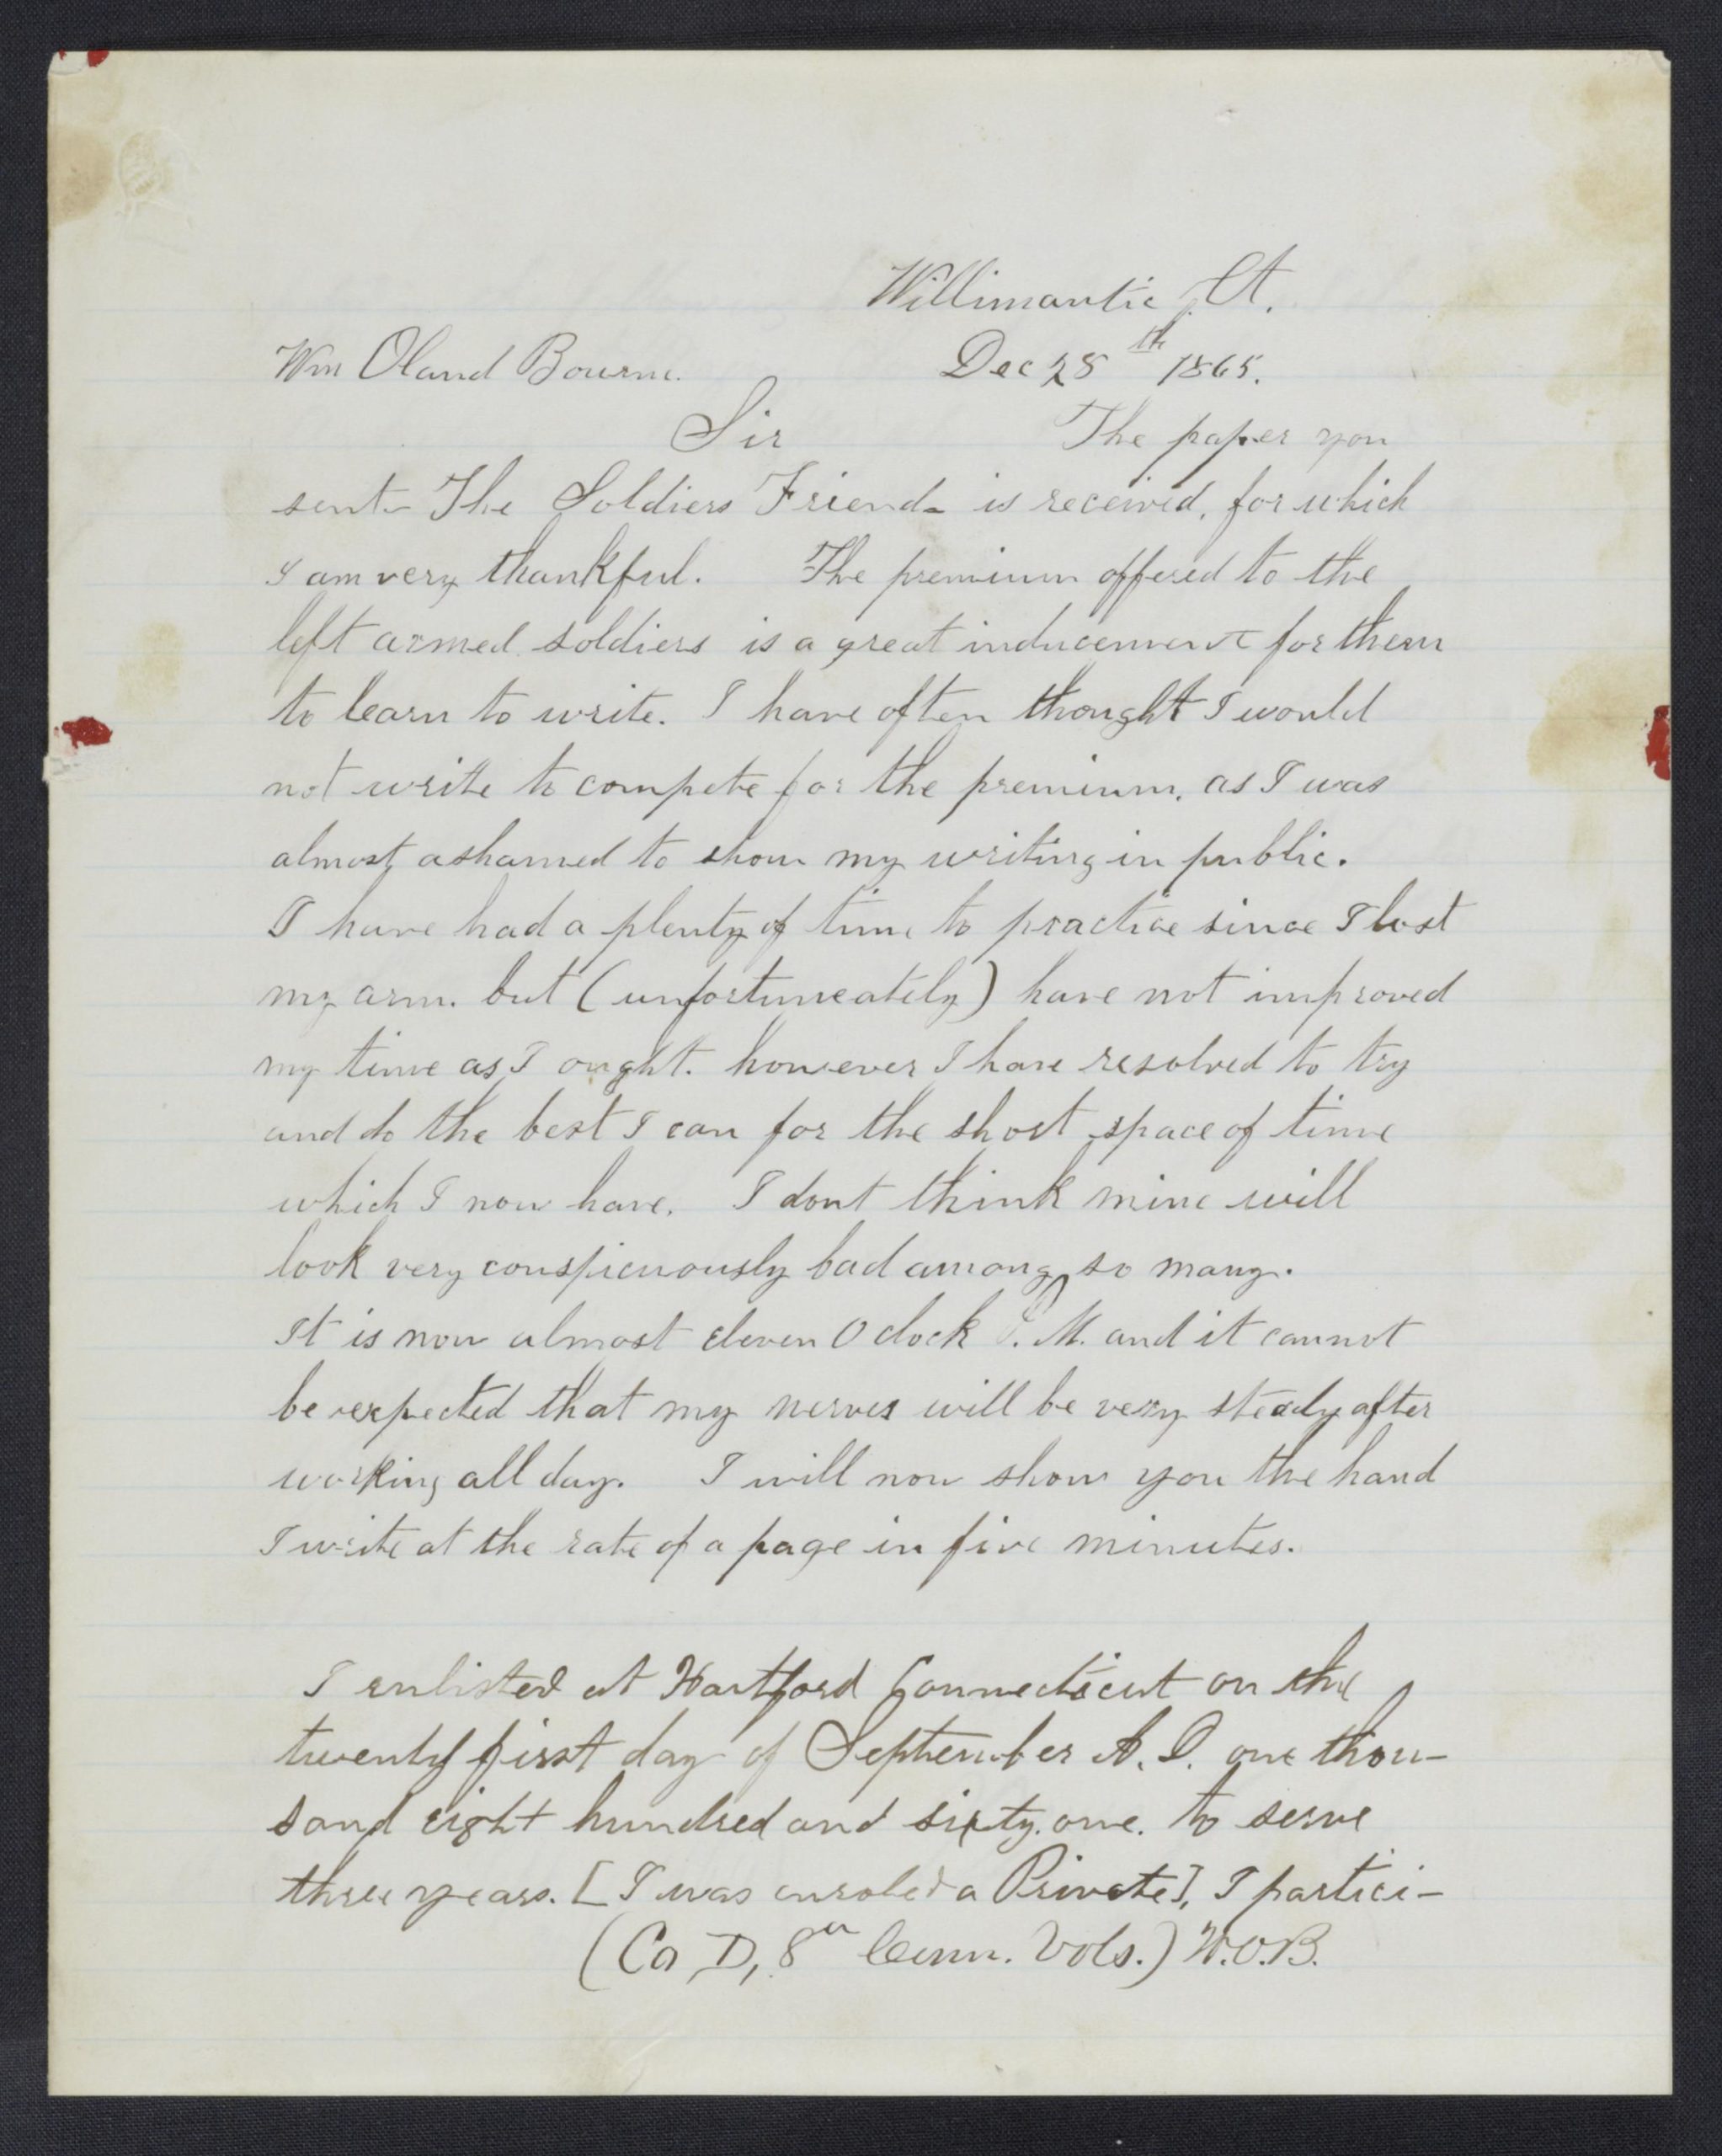 Willimantic, Ct.
Wm Oland Bourne. Dec 28th 1865.
Sir The paper you
sent - The Soldiers Friend - is received, for which
I am very thankful. The premium offered to the
left armed soldiers is a great inducement for them
to learn to write. I have often thought I would
not write to compete for the premium, as I was
almost ashamed to show my writing in public.
I have had a plenty of time to practice since I lost
my arm. but (unfortuneately) have not improved
my time as I ought. however I have resolved to try
and do the best I can for the short space of time
which I now have. I dont think mine will
look very conspicuously bad among so many.
It is now almost eleven O clock P. M. and it cannot
be expected that my nerves will be very steady after
working all day. I will now show you the hand
I write at the rate of a page in five minutes.
I enlisted at Hartford Connecticut on the
twenty first day of September A. D. one thou-
sand eight hundred and sixty. one. to serve
three years. [I was enroled a Private], I partici-
(Co D, 8th Conn. Vols.) W.O.B.